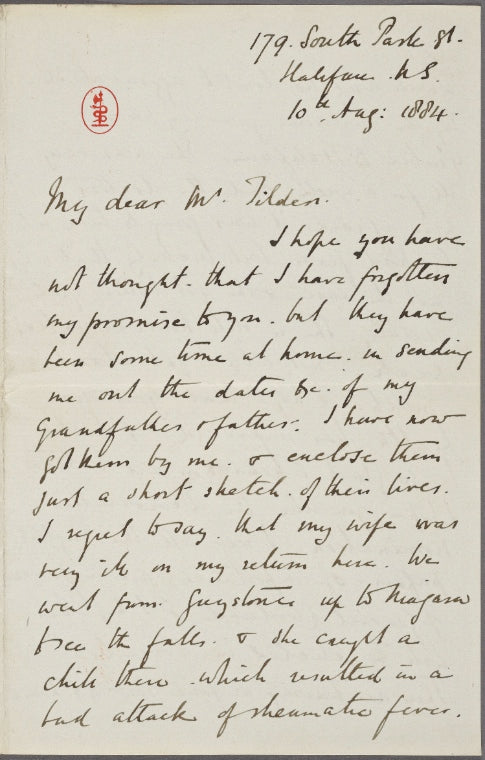 179. South Park St.
Halifax. N.S.
10th. Aug: 1884.
My dear Mr. Tilden.
I hope you have
not thought. that I have forgotten
my promise to you. but they have
been some time at home. in sending
me out the dates &c. of my
Grandfather & father. I have now
got them by me. & enclose them
just a short sketch. of their lives.
I regret to say. that my wife was
very ill on my return here. We
went from. Greystone up to Niagara
to see the falls. & she caught a
chill there. which resulted in a
bad attack of rheumatic fever.